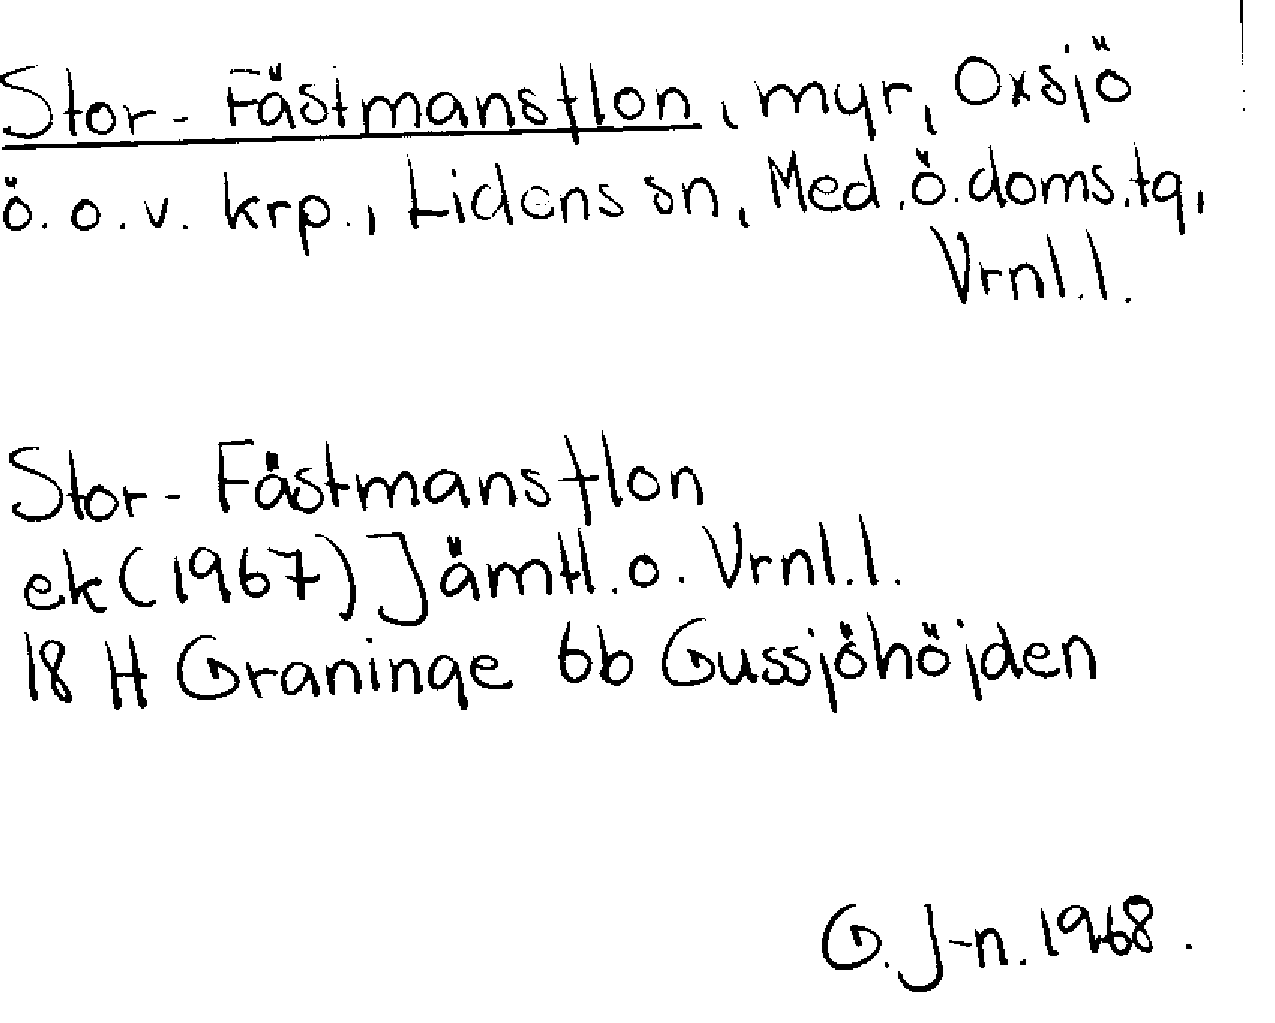 Stor-Fästmansflon, myr, Oxsjö
ö. o. v. krp., Lidens sn, Med. ö. doms.tg,
Vrnl.l.
Stor-Fästmansflon
ek (1967) Jämtl. o. Vrnl.l.
18 H Graninge 6b Gussjöhöjden
G. J-n. 1968.